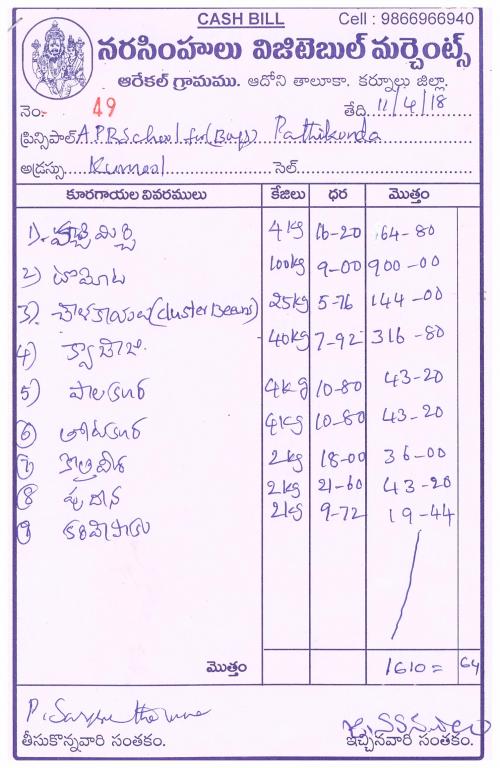 CASH BILL Cell : 9866966940
నరసింహులు విజిటెబుల్ మర్చెంట్స్
ఆరేకల్ గ్రామము. ఆదోని తాలూకా. కర్నూలు జిల్లా.
నెం. 49 తేది 11/4/18
ప్రిన్సిపాల్ A.P.R School for (Boys) Pathikonda
అడ్రస్సు Kurnool సెల్.
కూరగాయల వివరములు కేజీలు ధర మొత్తం
1) పచ్చి మిర్చి 4 kg 16-20 64-80
2) టొమోట 100kg 9-00 900-00
3) (cluster Beans) 25kg 5-76 144-00
4) క్యాబేజి 40kg 7-92 316-80
5) పాలకూర 4kg 10-80 43-20
6 తోటకూర 4kg 10-80 43-20
7 కొత్తిమీర 2kg 18-00 36-00
8 పుదీన 2kg 21-60 43-20
9 కరివేపాకు 2kg 9-72 19-44
మొత్తం 1610= 64
తీసుకొన్నవారి సంతకం. ఇచ్చినవారి సంతకం.